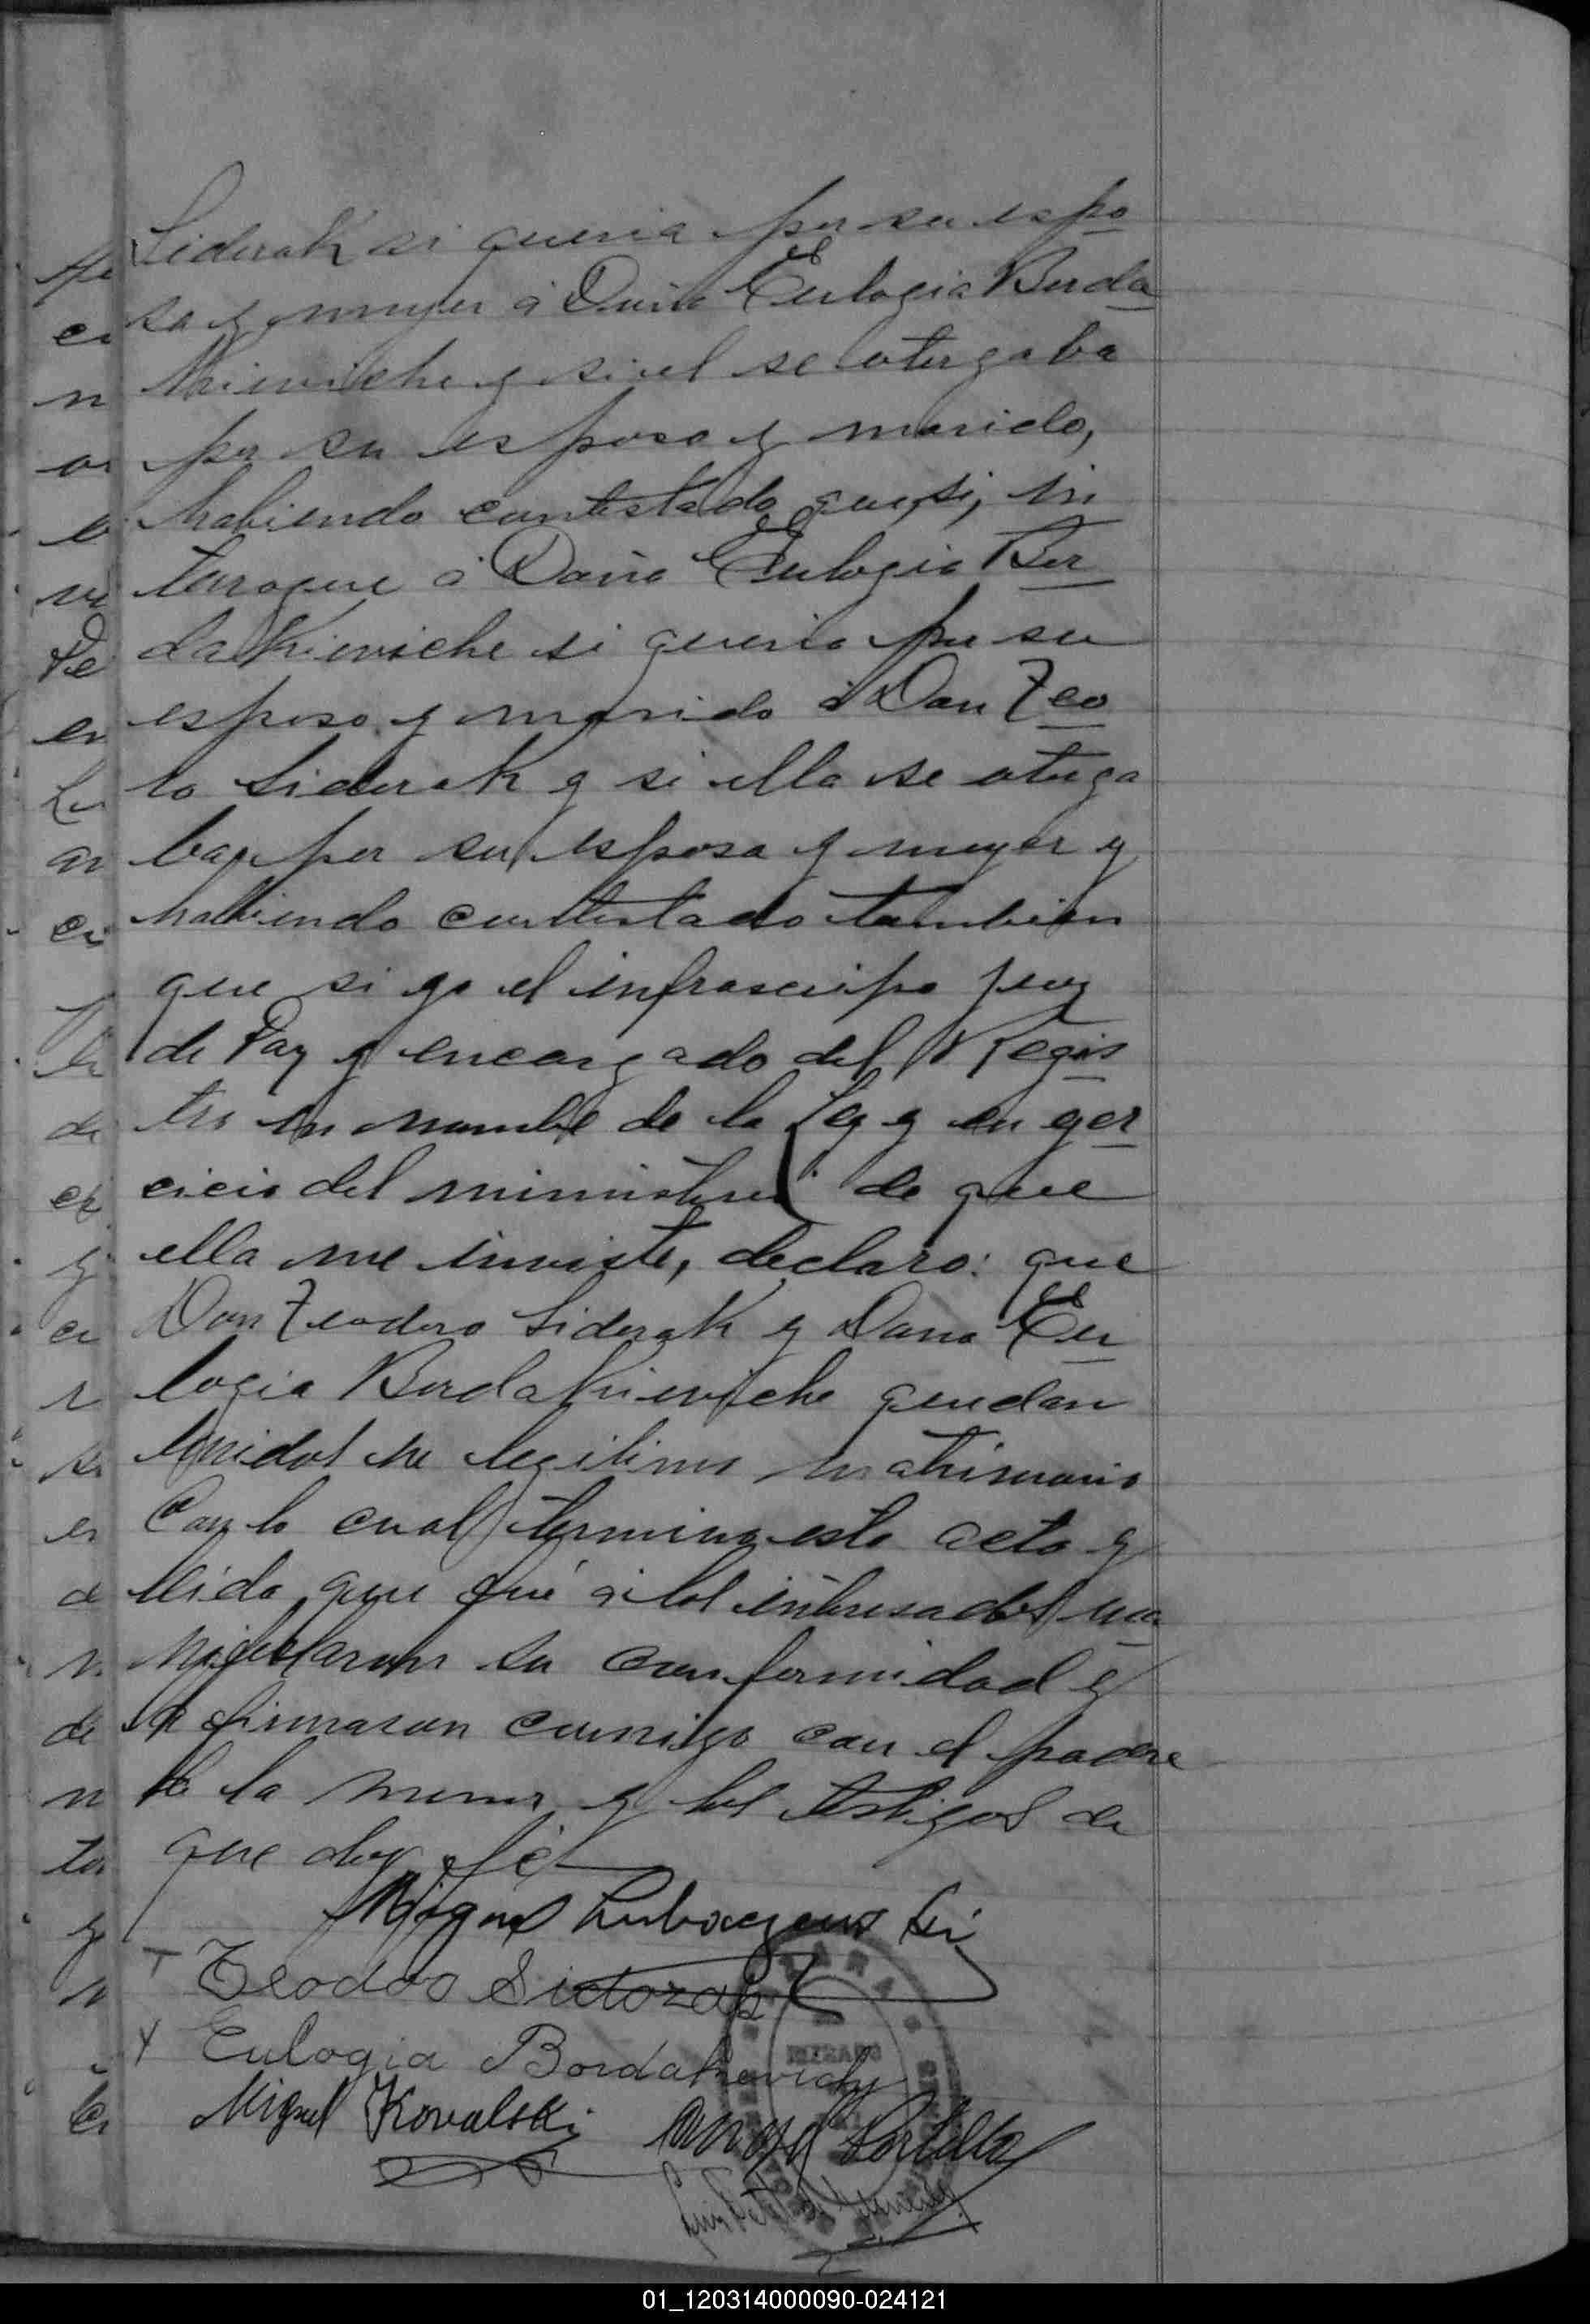 Siderak si queria por su espo
sa y mujer á Doña Eulogia Borda
Kieviche y si el se otorgaba
por su esposo y marido,
habiendo contestado que si, in
terrogue á Doña Eulogia Bor
daKieviche si queria por su
esposo y marido á Don Teo
ro Siderak y si ella se otorga
ba por su esposa y mujer y
habiendo contestado tambien
que si yo el infrascripto Juez
de Paz y encargado del Regis
tro en nombre de la Ley y en ejer
cicio del ministerio de que
ella me inviste, declaro: que
Don Teodoro Siderak y Doña Eu
logia BordaKieviche quedan
unidos en legitimo matrimonio
Con lo cual termino este acto y
leida que fué á los interesados ma
nifestaron su conformidad y
firmaron conmigo con el padre
de la menor y los testigos de
que doy fé
Miguel
Teodoro Sidorak
Eulogia Bordakevich
Miguel Kovalski Portillo
01_120314000090-024121